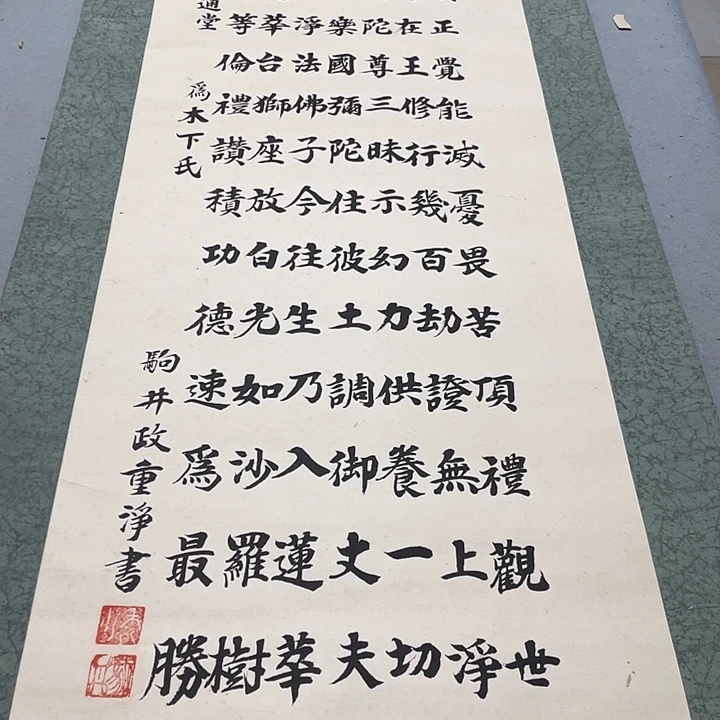 正覺能滅憂畏苦頂禮觀世
在王修行幾百劫證無上淨
陀尊三昧示幻力供養一切
樂國彌陀住彼土調御丈夫
淨法佛子今往生乃入蓮華
華台獅座放白光如沙羅樹
等倫禮讃積功德速爲最勝
通堂
爲木下氏
駒井政重淨書